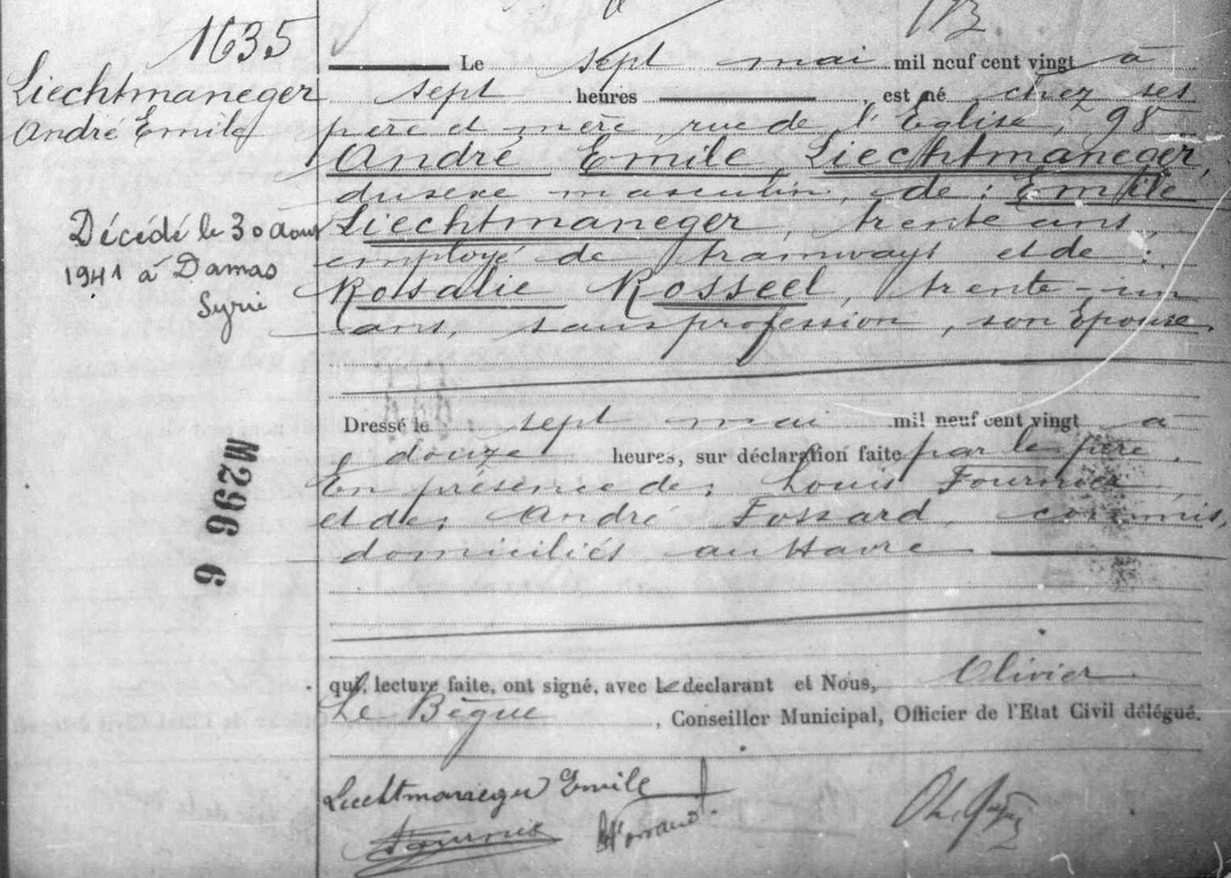 1635
Liechtmaneger
André Emile
Décédé le 30 aout
1941 à Damas
Syrie
M296 6
Le sept mai mil neuf cent vingt à
sept heures est né chez ses
père et mère, rue de l'Eglise, 98
André Emile Liechtmaneger,
du sexe masculin, de : Emile
Liechtmaneger, trente ans,
employé de tramways et de :
Rosalie Rosseel, trente-un
ans, sans profession, son Epouse.
Dressé le sept mai mil neuf cent vingt à
douze heures, sur déclaration faite par le père.
En présence de : Louis Fournier
et de : André Fossard, commis,
domiciliés au Havre
qui, lecture faite, ont signé, avec le declarant et Nous, Olivier
Le Bègue, Conseiller Municipal, Officier de l'Etat Civil délégué.
Liechtmaneger Emile